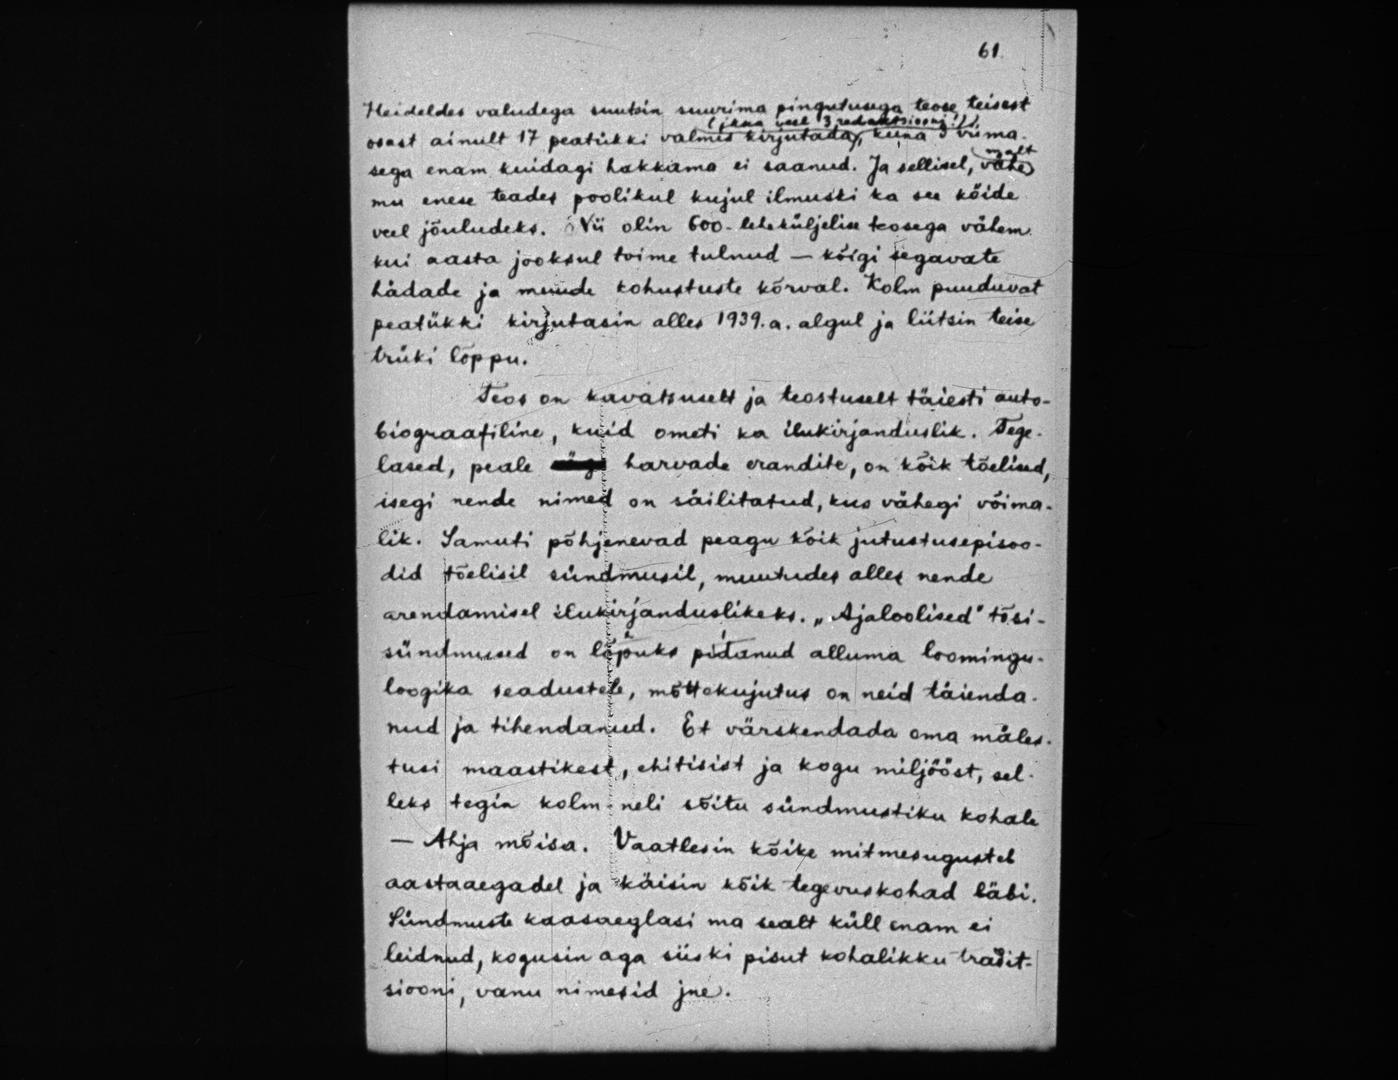 61.
Heideldes valudega suutsin suurima pingutusega teose teisest
(ikka veel 3 redaktsiooni!)
osast ainult 17 peatükki valmis kirjutada, kuna 3 viima-
sega enam kuidagi hakkama ei saanud. Ja sellisel, vähemalt
mu enese teades poolikul kujul ilmuski ka see köide
veel jõuludeks. Nii olin 600-leheküljelise teosega vähem
kui aasta jooksul toime tulnud — kõigi segavate
hädade ja muude kohustuste kõrval. Kolm puuduvat
peatükki kirjutasin alles 1939. a. algul ja liitsin teise
trüki lõppu.
Teos on kavatsuselt ja teostuselt täiesti auto-
biograafiline, kuid ometi ka ilukirjanduslik. Tege-
lased, peale harvade erandite, on kõik tõelised,
isegi nende nimed on säilitatud, kus vähegi võima-
lik. Samuti põhjenevad peagu kõik jutustusepisoo-
did tõelisil sündmusil, muutudes alles nende
arendamisel ilukirjanduslikeks. „Ajaloolised" tõsi-
sündmused on lõpuks pidanud alluma loomingu-
loogika seadustele, mõttekujutus on neid täienda-
nud ja tihendanud. Et värskendada oma mäles-
tusi maastikest, ehitisist ja kogu miljööst, sel-
leks tegin kolm-neli sõitu sündmustiku kohale
— Ahja mõisa. Vaatlesin kõike mitmesugustel
aastaaegadel ja käisin kõik tegevuskohad läbi.
Sündmuste kaasaeglasi ma sealt küll enam ei
leidnud, kogusin aga siiski pisut kohalikku tradit-
siooni, vanu nimesid jne.